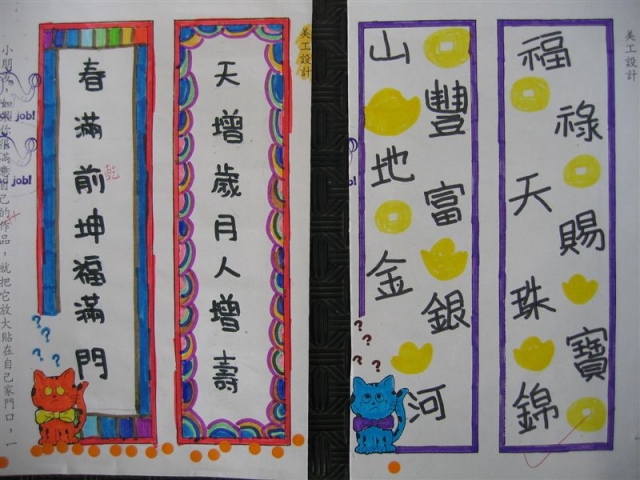 美工設計
福祿天賜珠寶錦
山豐地富金銀河
美工設計
天增歲月人增壽
春滿前坤福滿門
乾
job!
job!
小朋友，如果你很滿意自己的作品，就把它放大貼在自己家門口，一